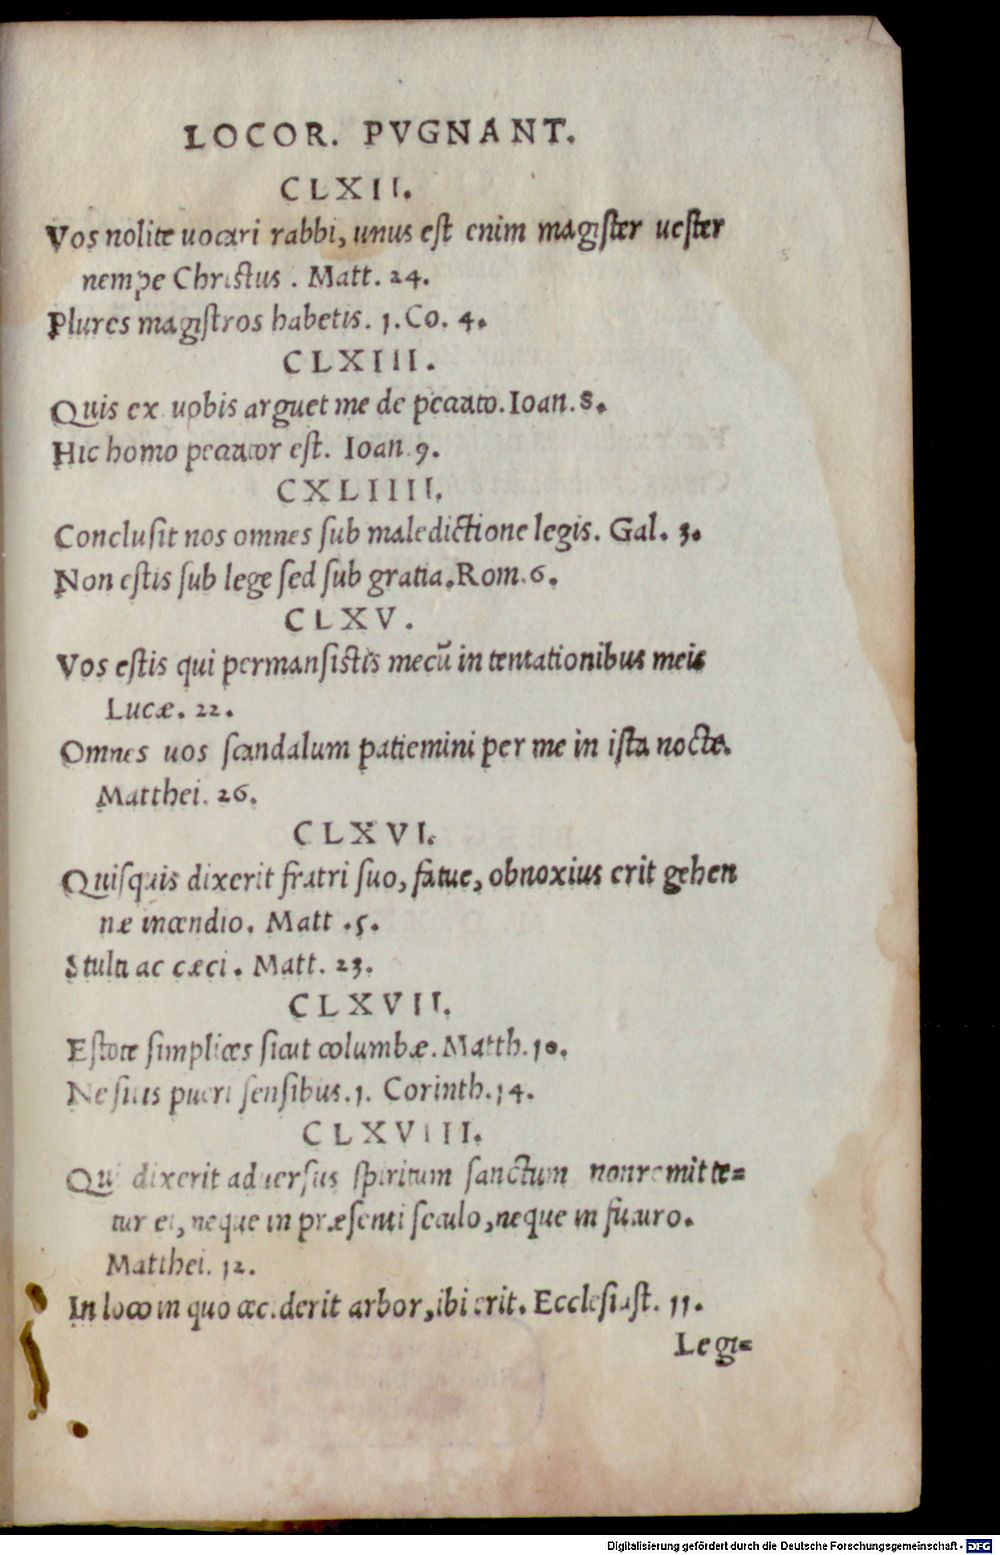 LOCOR. PVGNANT.
CLXII.
Vos nolite uocari rabbi, unus est enim magister uester
nempe Christus. Matt. 24.
Plures magistros habetis. 1. Co. 4.
CLXIII.
Quis ex uobis arguet me de peccato. Ioan. 8.
Hic homo peccator est. Ioan. 9.
CXLIIII.
Conclusit nos omnes sub maledictione legis. Gal. 3.
Non estis sub lege sed sub gratia. Rom. 6.
CLXV.
Vos estis qui permansistis mecū in tentationibus meis
Lucæ. 22.
Omnes uos scandalum patiemini per me in ista nocte.
Matthei. 26.
CLXVI.
Quisquis dixerit fratri suo, fatue, obnoxius erit gehen
næ incendio. Matt. 5.
Stulti ac cæci. Matt. 23.
CLXVII.
Estote simplices sicut columbæ. Matth. 10.
Ne sitis pueri sensibus. 1. Corinth. 14.
CLXVIII.
Qui dixerit aduersus spiritum sanctum non remitte=
tur ei, neque in præsenti seculo, neque in futuro.
Matthei. 12.
In loco in quo ceciderit arbor, ibi erit. Ecclesiast. 11.
Legi=
Digitalisierung gefördert durch die Deutsche Forschungsgemeinschaft - DFG